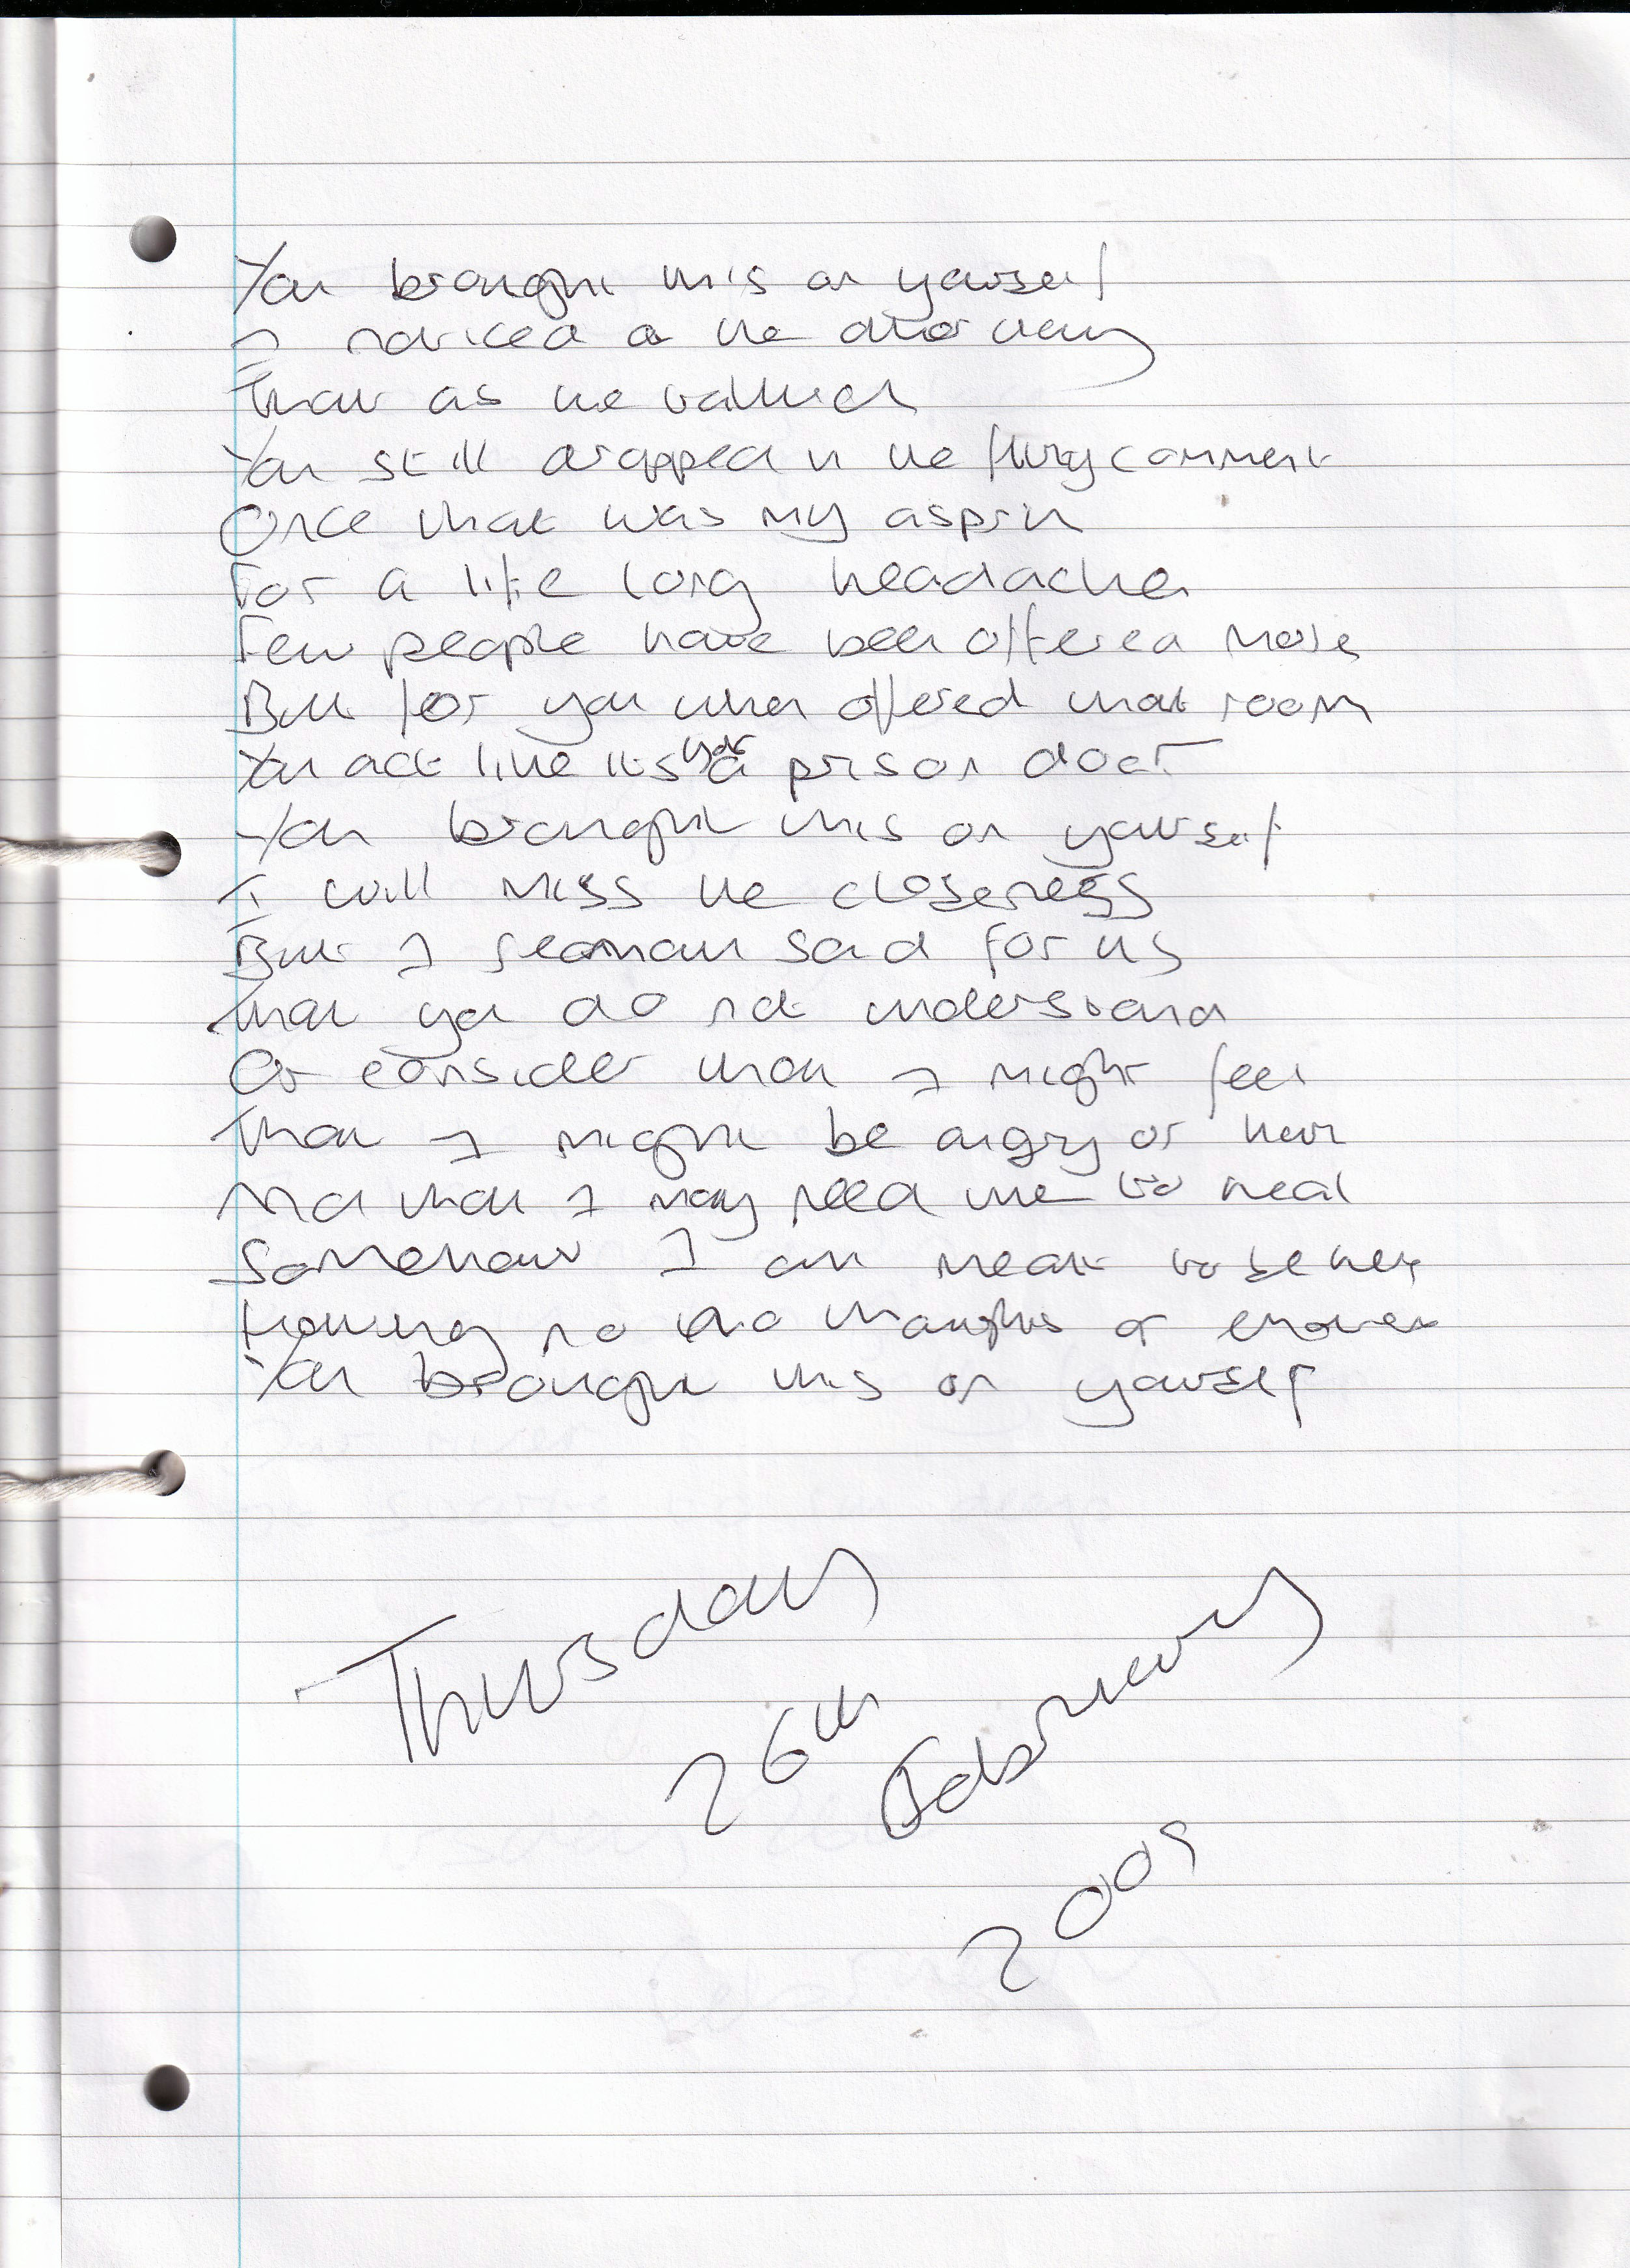 You brought this on yourself
I noticed a the other day
That as we talked
You still dropped in the flirty comment
Once that was my asprin
For a life long headache
Few people have been offered more
But for you when offered that room
You act like its your a prison door
You brought this on yourself
I will miss the closeness
But I remain sad for us
That you do not understand
Or consider that I might feel
That I might be angry or hurt
And that I may need time to heal
Somehow I am meant to be here
Having no thoughts or
You brought this on yourself
Thursday
26th February
2009